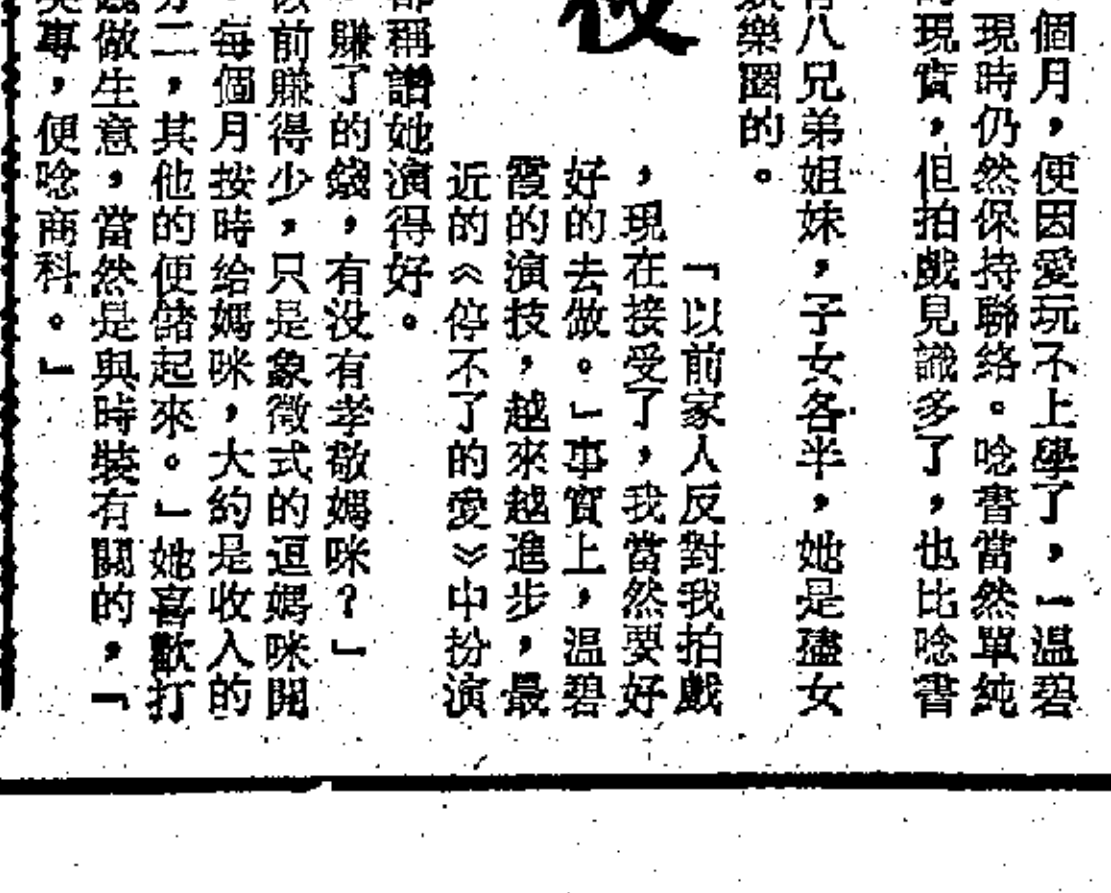 個月，便因愛玩不上學了，「温碧
現時仍然保持聯絡。唸書當然單純
現實，但拍戲見識多了，也比唸書
八兄弟姐妹，子女各半，她是孻女
樂圈的。
「以前家人反對我拍戲
，現在接受了，我當然要好
好的去做。」事實上，温碧
霞的演技，越來越進步，最
近的《停不了的愛》中扮演
稱讚她演得好。
賺了的錢，有没有孝敬媽咪？」
前賺得少，只是象徵式的逗媽咪開
每個月按時给媽咪，大約是收入的
二，其他的便儲起來。」她喜歡打
做生意，當然是與時裝有關的，「
專，便唸商科。」